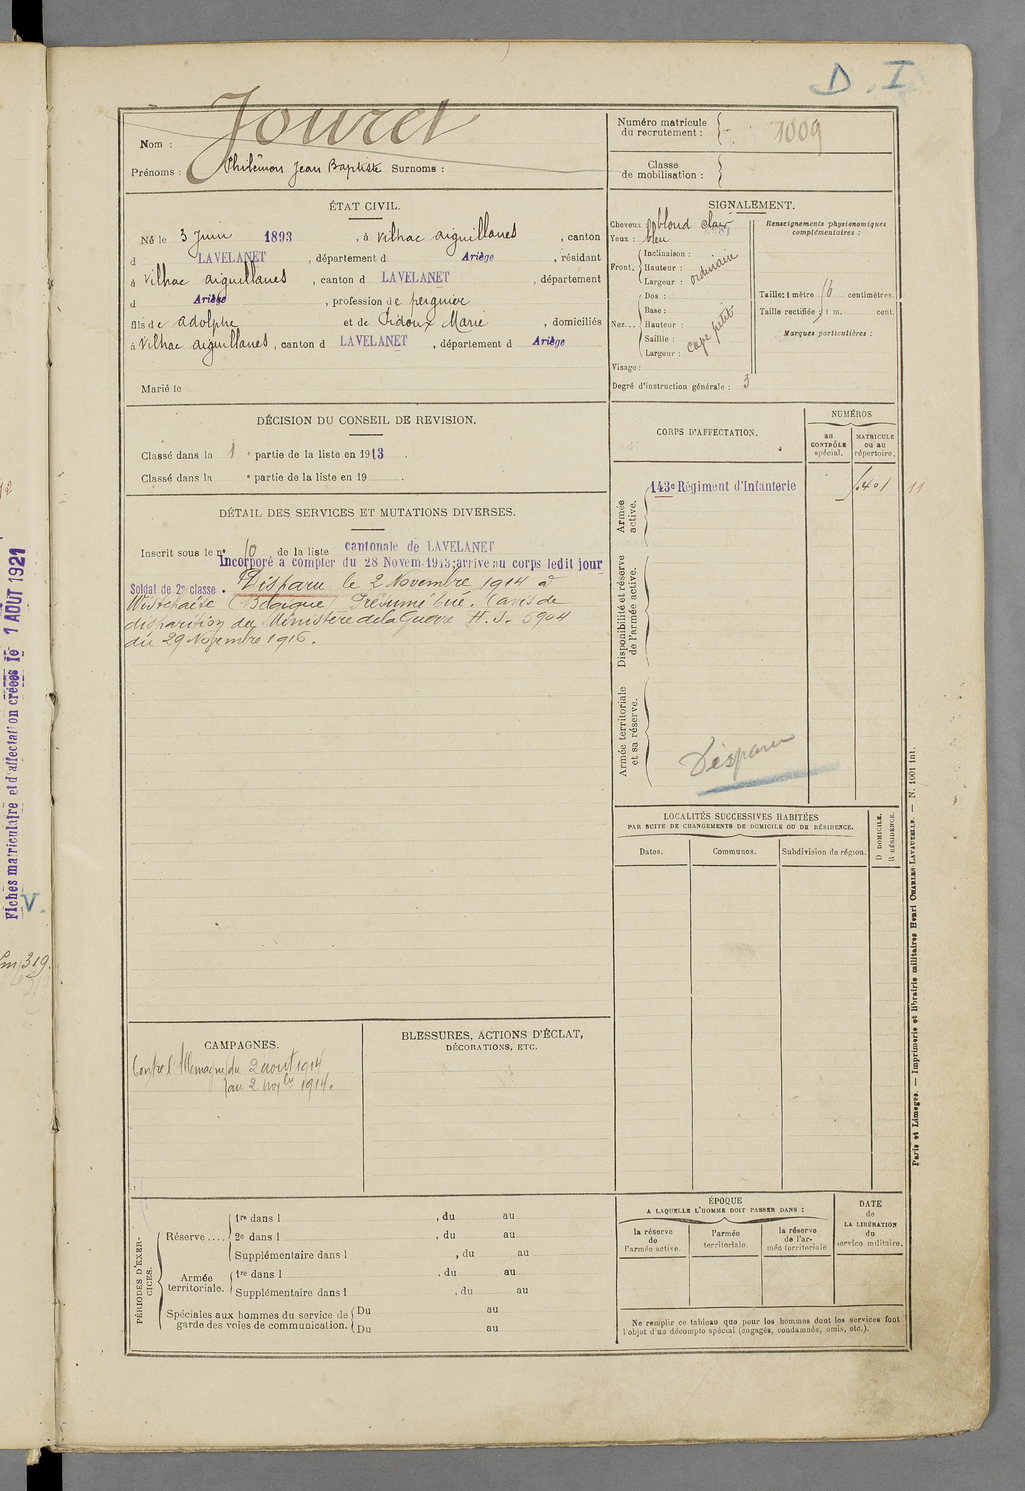 D. I
Jouret
Nom :
Prénoms : Philémon Jean Baptiste Surnoms :
Numéro matricule
du recrutement : 1009
Classe
de mobilisation :
ÉTAT CIVIL.
Né le 3 Juin 1893, à Vilhac aiguillanes, canton
d LAVELANET, département d Ariège, résidant
à Vilhac aiguillanes, canton d LAVELANET, département
d Ariège, profession de peignier
fils de adolphe et de Pidoux Marie, domiciliés
à Vilhac aiguillanes, canton d LAVELANET, département d Ariège
Marié le
SIGNALEMENT.
Cheveux blond clair
Yeux : bleu
Inclinaison :
Front. Hauteur : ordinaire
Largeur :
Dos :
Base :
Nez... Hauteur :
Saillie :
Largeur : cape petit
Visage :
Degré d'instruction générale : 3
Renseignements physionomiques
complémentaires :
Taille : 1 mètre 6 centimètres.
Taille rectifiée : 1 m. cent.
Marques particulières :
DÉCISION DU CONSEIL DE REVISION.
Classé dans la 1 e partie de la liste en 1913.
Classé dans la e partie de la liste en 19
DÉTAIL DES SERVICES ET MUTATIONS DIVERSES.
Inscrit sous le n° 10 de la liste cantonale de LAVELANET
Incorporé à compter du 28 Novem. 1913; arrivé au corps ledit jour
Soldat de 2e classe. Disparu le 2 Novembre 1914 à
Wistchaëte (Belgique) Présumé tué. (avis de
disparition du Ministère de la Guerre H. J. 5904
du 29 Novembre 1916.
CORPS D'AFFECTATION.
NUMÉROS
au
CONTRÔLE
spécial.
MATRICULE
ou au
répertoire.
Armée
active.
143e Régiment d'Infanterie
11
Disponibilité et réserve
de l'armée active.
Armée territoriale
et sa réserve.
Disparu
LOCALITÉS SUCCESSIVES HABITÉES
PAR SUITE DE CHANGEMENTS DE DOMICILE OU DE RÉSIDENCE.
Dates.
Communes.
Subdivision de région.
D DOMICILE.
R RÉSIDENCE.
CAMPAGNES.
Contre l'Allemagne du 2 août 1914
au 2 nov bre 1914.
BLESSURES, ACTIONS D'ÉCLAT,
DÉCORATIONS, ETC.
PÉRIODES D'EXER-
CICES.
Réserve .... 1re dans l , du au
2e dans l , du au
Supplémentaire dans l , du au
Armée
territoriale. 1re dans l , du au
Supplémentaire dans l , du au
Spéciales aux hommes du service de
garde des voies de communication. Du au
Du au
ÉPOQUE
A LAQUELLE L'HOMME DOIT PASSER DANS :
la réserve
de
l'armée active.
l'armée
territoriale.
la réserve
de l'ar-
mée territoriale
DATE
de
LA LIBÉRATION
du
service militaire.
Ne remplir ce tableau que pour les hommes dont les services font
l'objet d'un décompte spécial (engagés, condamnés, omis, etc.).
Paris et Limoges. — Imprimerie et librairie militaires Henri CHARLES-LAVAUZELLE. — N. 1001 Int.
Fiches matriculaire et d'affectation créées le 1 AOUT 1921
V.
319.